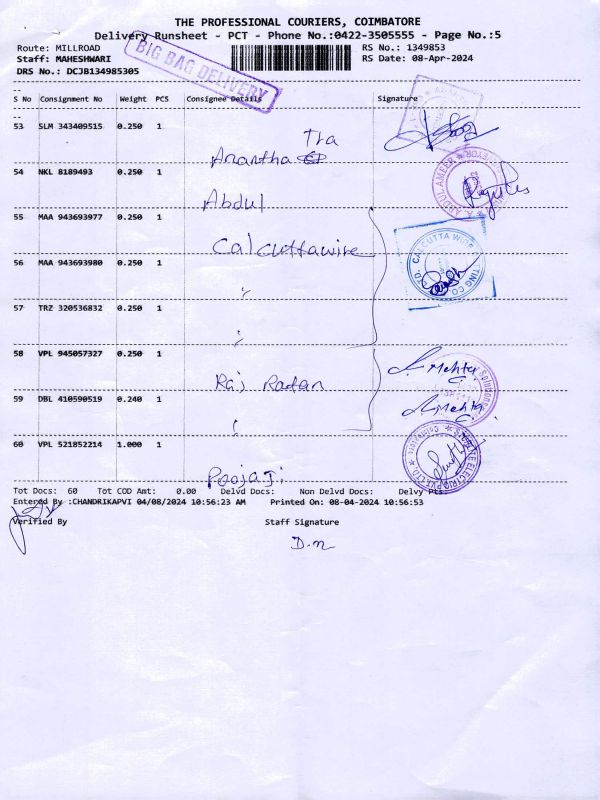 THE PROFESSIONAL COURIERS, COIMBATORE
Delivery Runsheet - PCT - Phone No.:0422-3505555 - Page No.:5
Route: MILLROAD
RS No.: 1349853
Staff: MAHESHWARI
RS Date: 08-Apr-2024
DRS No.: DCJB134985305
BIG BAG DELIVERY
S No Consignment No Weight PCS Consignee Details Signature
53 SLM 343409515 0.250 1
Anantha Tra
54 NKL 8189493 0.250 1
Abdul
55 MAA 943693977 0.250 1
Calcuttawire
56 MAA 943693980 0.250 1
"
57 TRZ 320536832 0.250 1
"
58 VPL 945057327 0.250 1
Raj Ratan
Mehta
59 DBL 410590519 0.240 1
"
Mehta
60 VPL 521852214 1.000 1
Poojaji
Tot Docs: 60 Tot COD Amt: 0.00 Delvd Docs: Non Delvd Docs: Delvy Pts
Entered By :CHANDRIKAPVI 04/08/2024 10:56:23 AM Printed On: 08-04-2024 10:56:53
Verified By Staff Signature
D.m